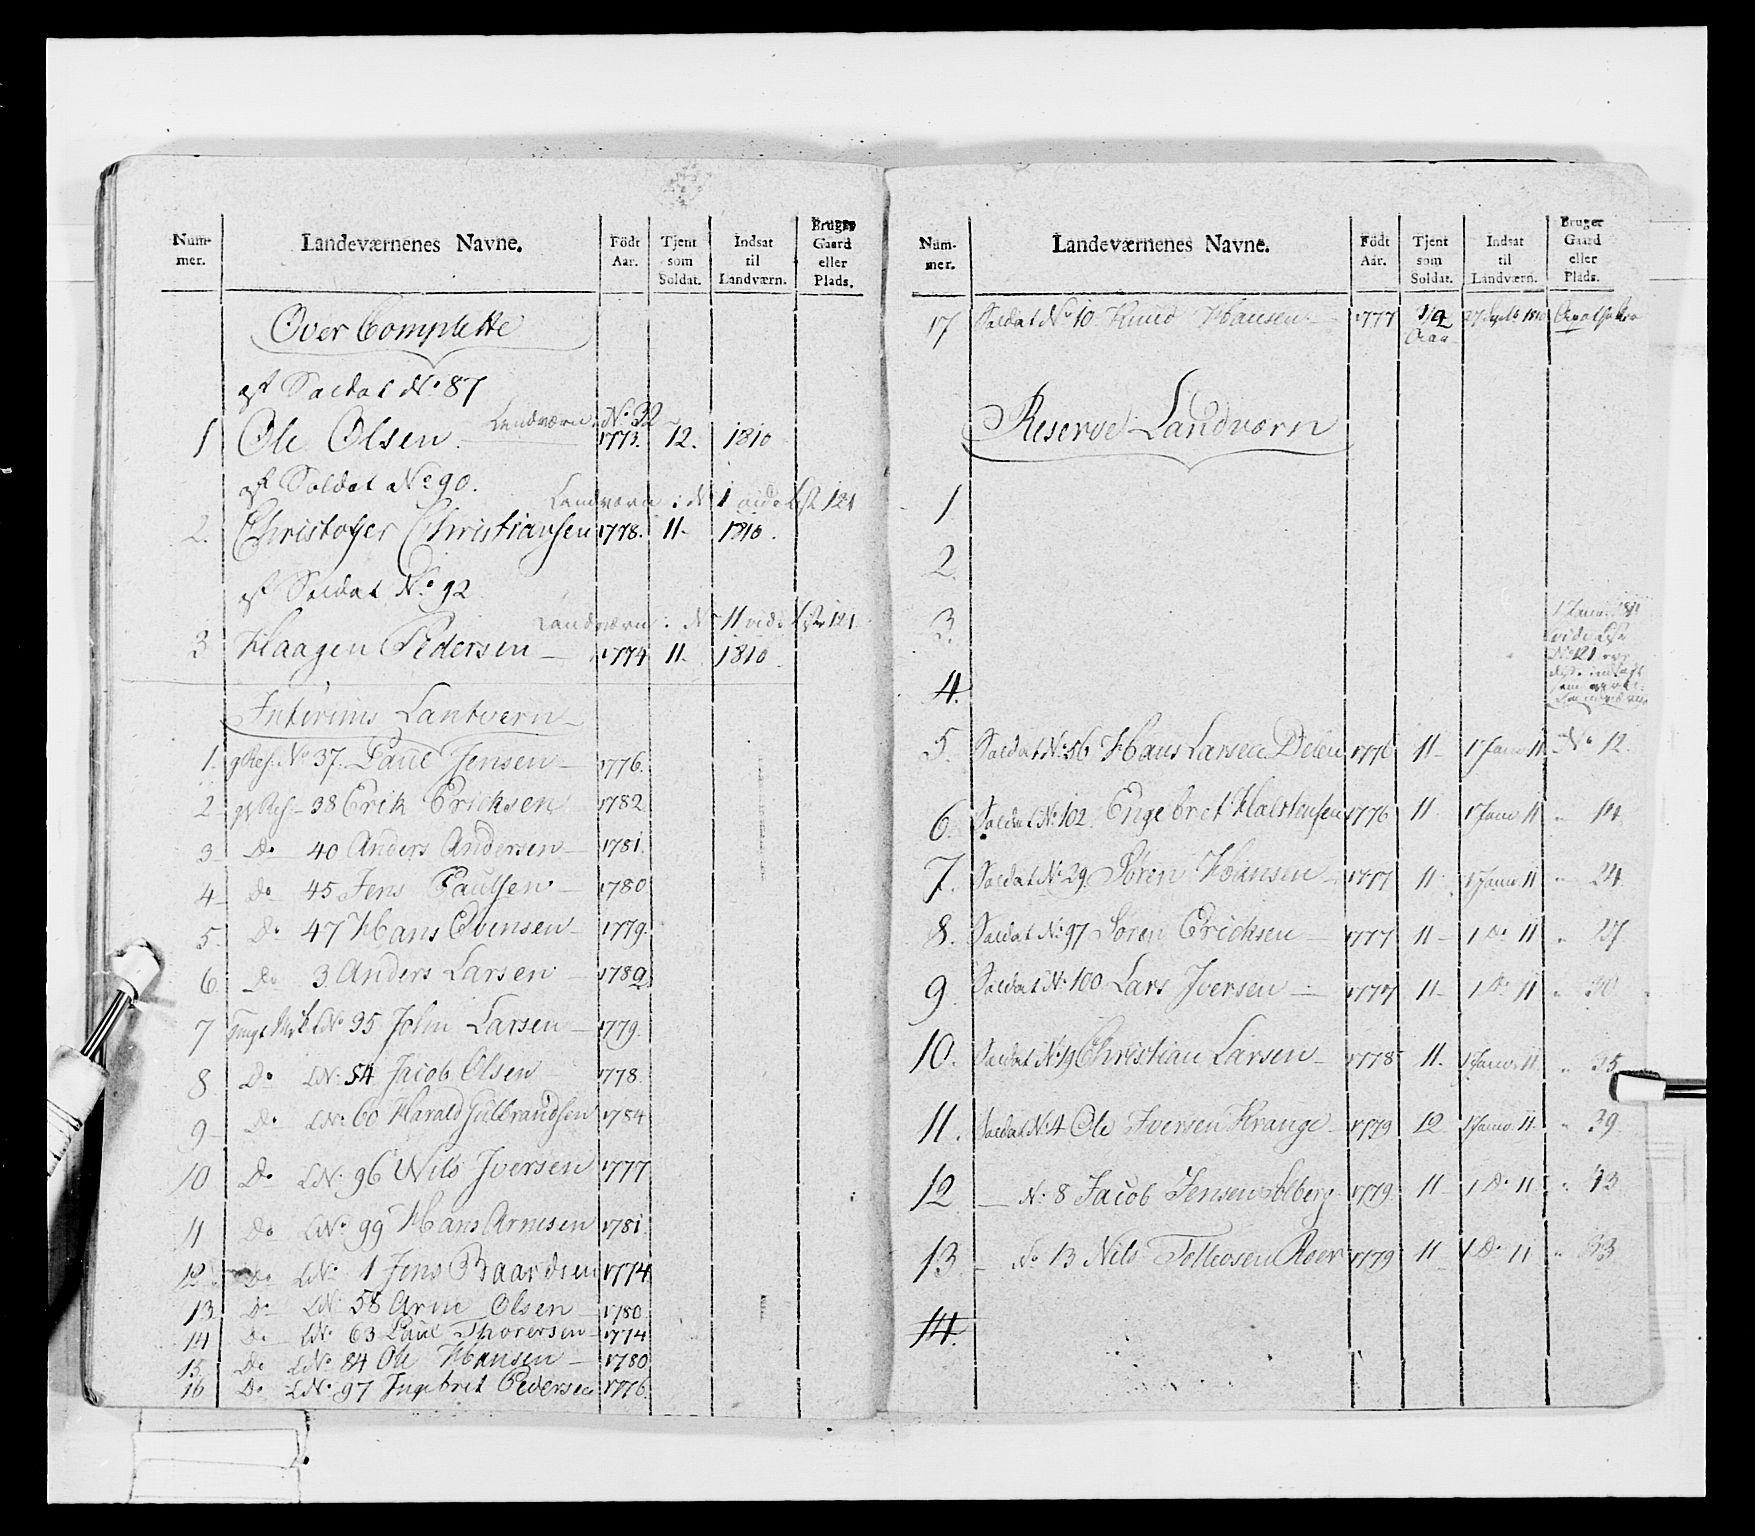 Num-mer. Landeværnenes Navne. Födt Aar. Tjent som Soldat. Indsat til Landværn. Bruger Gaard eller Plads.
Over Complette
Soldat No 87
Landværn No 32
1 Ole Olsen 1773. 12. 1810
Soldat No 90.
Landværn: No 1 vide 121
2. Christoffer Christiansen 1778. 11 1810.
Soldat No 92
Landværn: No 11 vide 121
3 Haagen Pedersen 1774 11 1810
Interims Lantvern
1. No 37. Paul Jensen 1776.
2 38 Erik Ericksen 1782
3 Do 40 Anders Andersen 1781.
4 Do 45 Jens Paulsen 1780
5. Do 47 Hans Evensen 1779.
6. Do 3 Anders Larsen 1789
7 LNo 35 John Larsen 1779.
8 Do LNo 54 Jacob Olsen 1778.
9 Do LNo 60 Harald Gulbrandsen 1784
10 Do LNo 96 Nils Iversen 1777
11 Do LNo 99 Hans Arnesen 1781.
12 Do LNo 1 Jens Baardsen 1774
13 Do LNo 58 Arne Olsen 1780
14 Do LNo 63 Paul Thoresen 1774
15 Do LNo 84 Ole Hansen 1780
16 Do LNo 97 Ingebret Pedersen 1776.
Num-mer. Landeværnenes Navne. Födt Aar. Tjent som Soldat. Indsat til Landværn. Bruger Gaard eller Plads.
17 Soldat No 10 Knud Hansen 1777 Aar 27 1810
Reserve Landværn
1
2.
3.
4.
vide
No 121
5. Soldat No 56 Hans Larsen Delen 1776 11 1 Janv 11 No 12
6. Soldat No 102. Engebret Halstensen 1776 11 1 Janv 11 " 14
7. Soldat No 29. Søren Hansen 1777 11 1 Janv 11 " 24
8. Soldat No 97 Søren Ericksen 1777 11 1 Do 11 " 27
9. Soldat No 100 Lars Iversen 1777 11 1 Do 11 " 30
10. Soldat No Christian Larsen 1778 11. 1 Janv. 11. " 35
11. Soldat No 4 Ole Iversen Krange 1779 12 1 Janv 11. " 39
12 No 8 Jacob Jensen Solberg 1779 11 1 Do 11 "
13. No 13 Nils Tollevsen Roer 1779 11 1 Do 11 "
14.